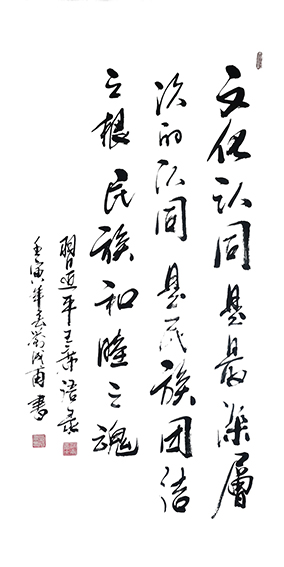 文化认同是最深层
次的认同是民族团结
之根民族和睦之魂
習近平主席语录
壬寅年春 甫書